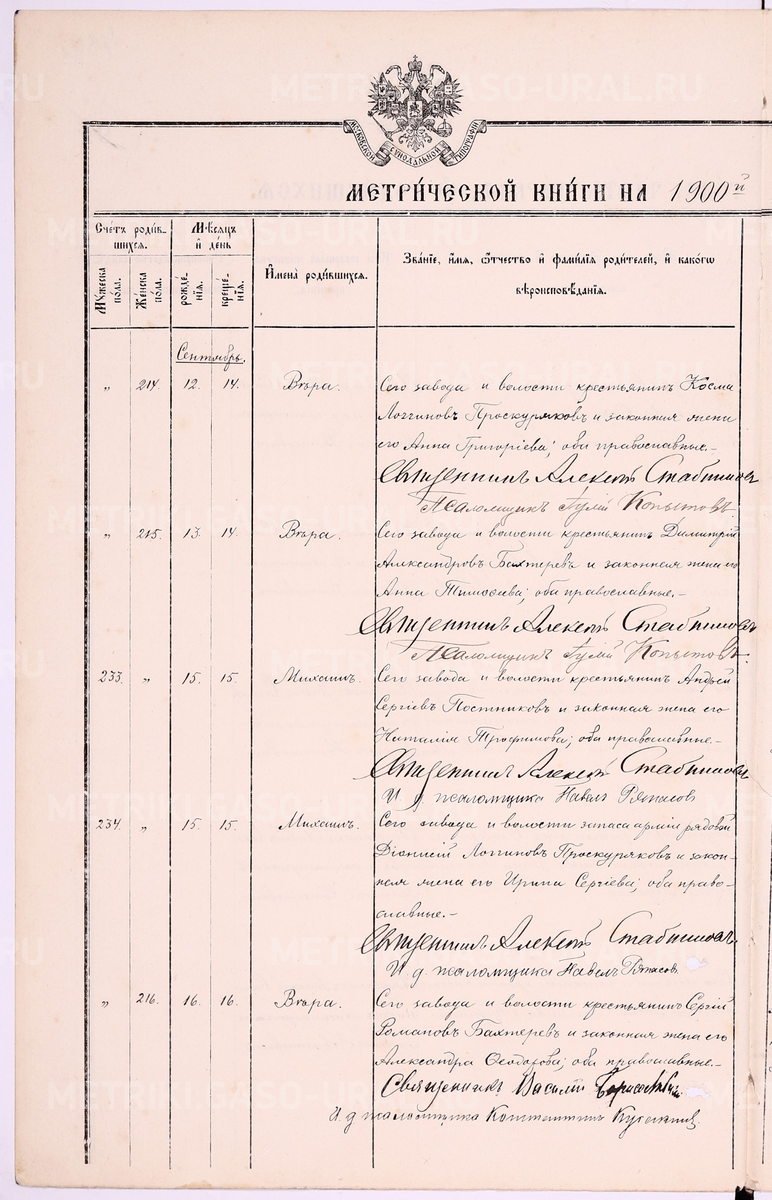 METRIKI.GASO-URAL.RU
МОСКОВСКОЙ СѴНОДАЛЬНОЙ ТИПОГРАФІИ
МЕТРИ́ЧЕСКОЙ КНИ́ГИ НА 1900й
Счетъ роди́вшихся.
Мѣ́сяцъ и҆ де́нь
Му́жеска по́ла.
Же́нска по́ла.
рожде́нїѧ.
креще́нїѧ.
И҆мена̀ роди́вшихся.
Зва́нїе, и҆́мѧ, ѻ҆́тчество и҆ фами́лїѧ роди́телей, и҆ какѡ́гѡ
вѣроисповѣ́данїѧ.
Сентябрь.
„ 214. 12. 14. Вѣра. Сего завода и волости крестьянинъ Косма
Логгиновъ Проскуряковъ и законная жена
его Анна Григоріева; оба православные.–
Священникъ Алексѣй
Псаломщикъ Копытовъ.
„ 215. 13. 14. Вѣра. Сего завода и волости крестьянинъ Димитрій
Александровъ Бахтеревъ и законная жена его
Анна Тимоѳеева; оба православные.–
Священникъ Алексѣй
Псаломщикъ Копытовъ.
233. „ 15. 15. Михаилъ. Сего завода и волости крестьянинъ Андрей
Сергіевъ Постниковъ и законная жена его
Наталія Трофимова; оба православные.–
Священникъ Алексѣй
И. д. псаломщика Павелъ Ряпасов
234. „ 15. 15. Михаилъ. Сего завода и волости запаса арміи рядовой
Діонисій Логгиновъ Проскуряковъ и закон-
ная жена его Ирина Сергіева; оба право-
славные.–
Священникъ Алексѣй
И. д. псаломщика Павелъ Ряпасов
„ 216. 16. 16. Вѣра. Сего завода и волости крестьянинъ Сергій
Романовъ Бахтеревъ и законная жена его
Александра Ѳеодорова; оба православные.–
Священникъ Василій
И. д. псаломщика Константинъ